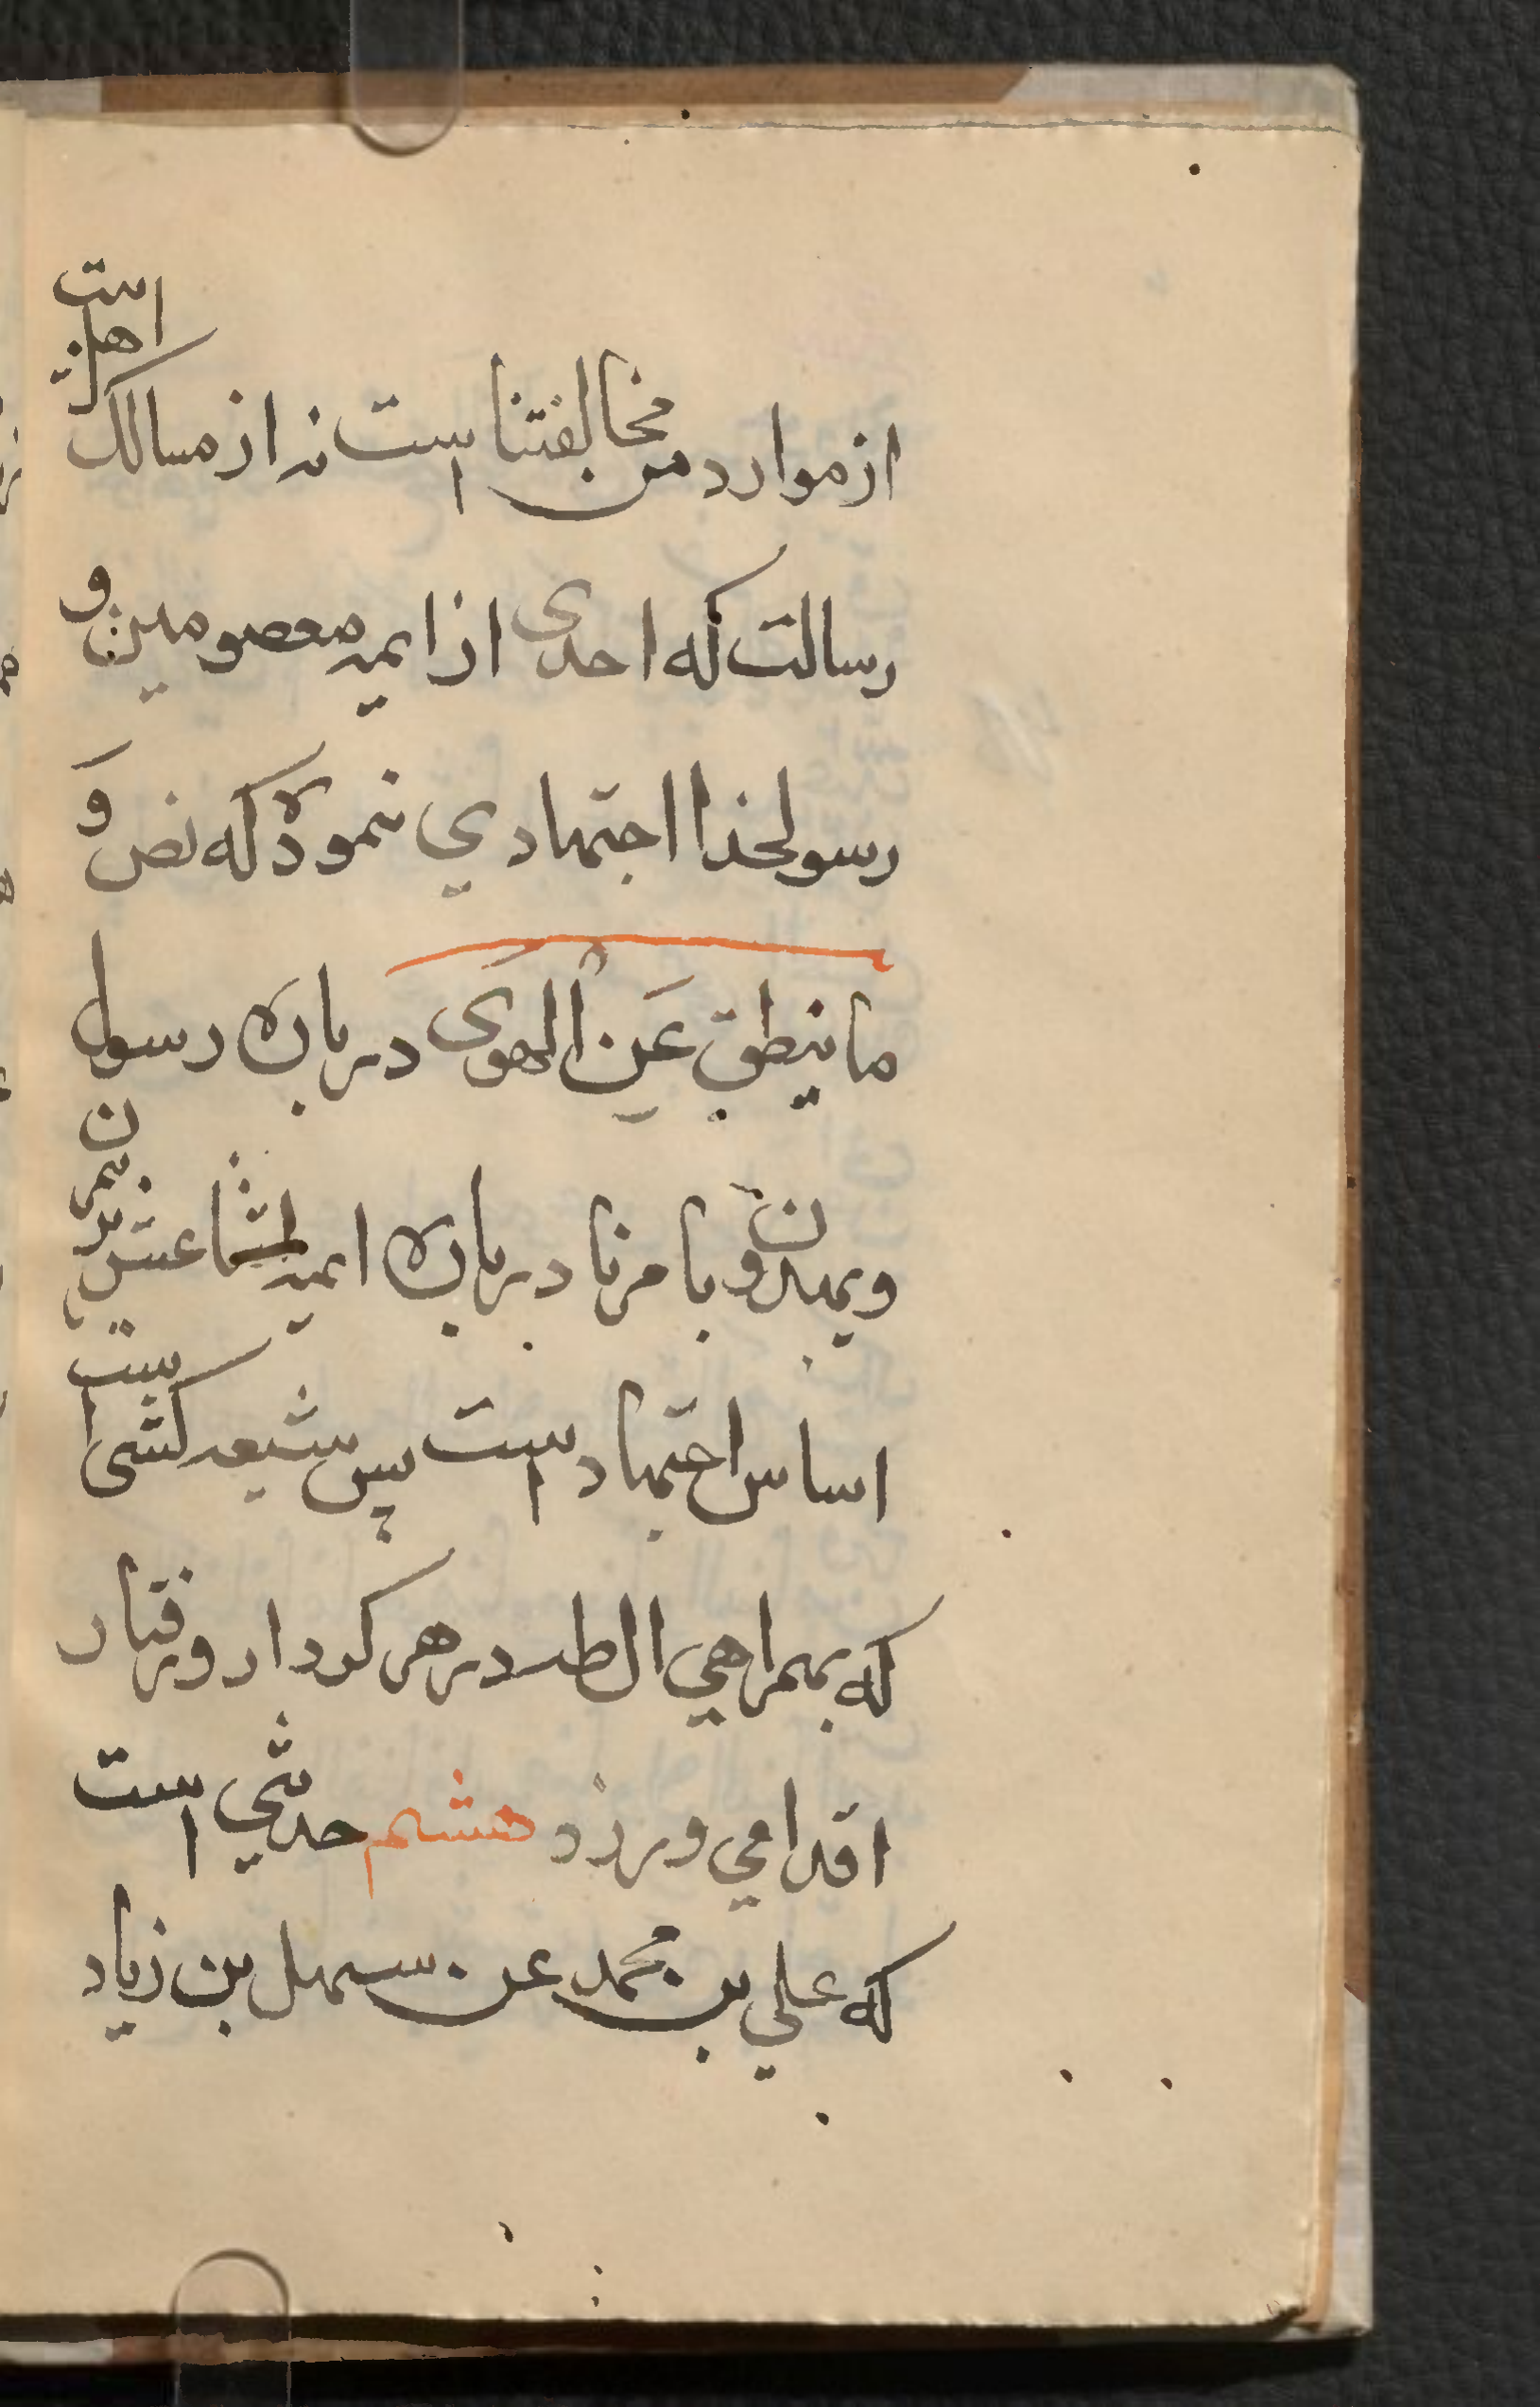 از موارد من خالفتنا است نه از مسالک اهلبیت
رسالت که احدی از ایمه معصومین و
رسولخدا اجتهادي نموده که نص و
ما ینطق عَنِ اْلهَوی در باره رسول
و یهدون بامرنا در باره ایمه اثناعشر
اساس اجتهاد است پس شیعه کشی است
که بهمراهي ال طه در هر کردار و رفتار
اقدامي ورزد هشتم حدیثي است
که علي بن محمد عن سهل بن زیاد